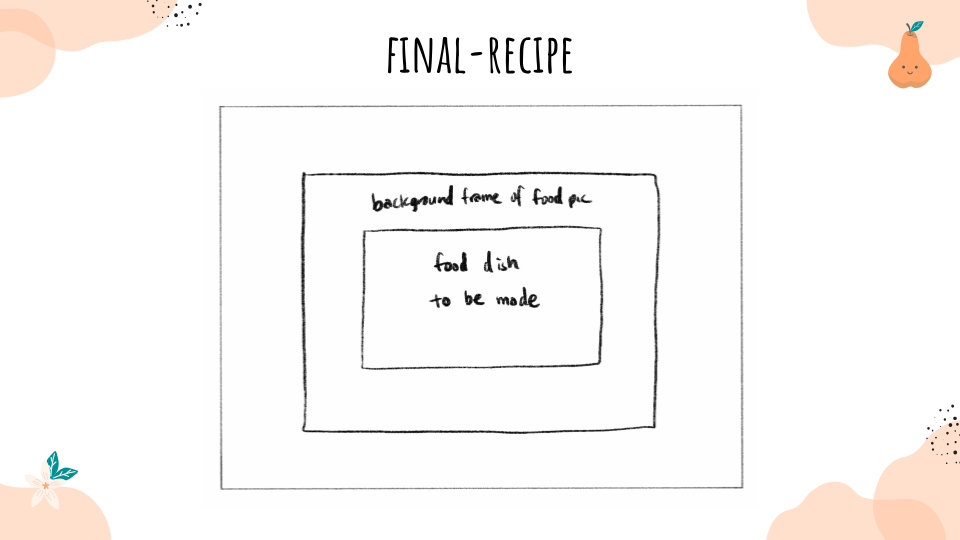 FINAL-RECIPE
background frame of food pic
food dish
to be made